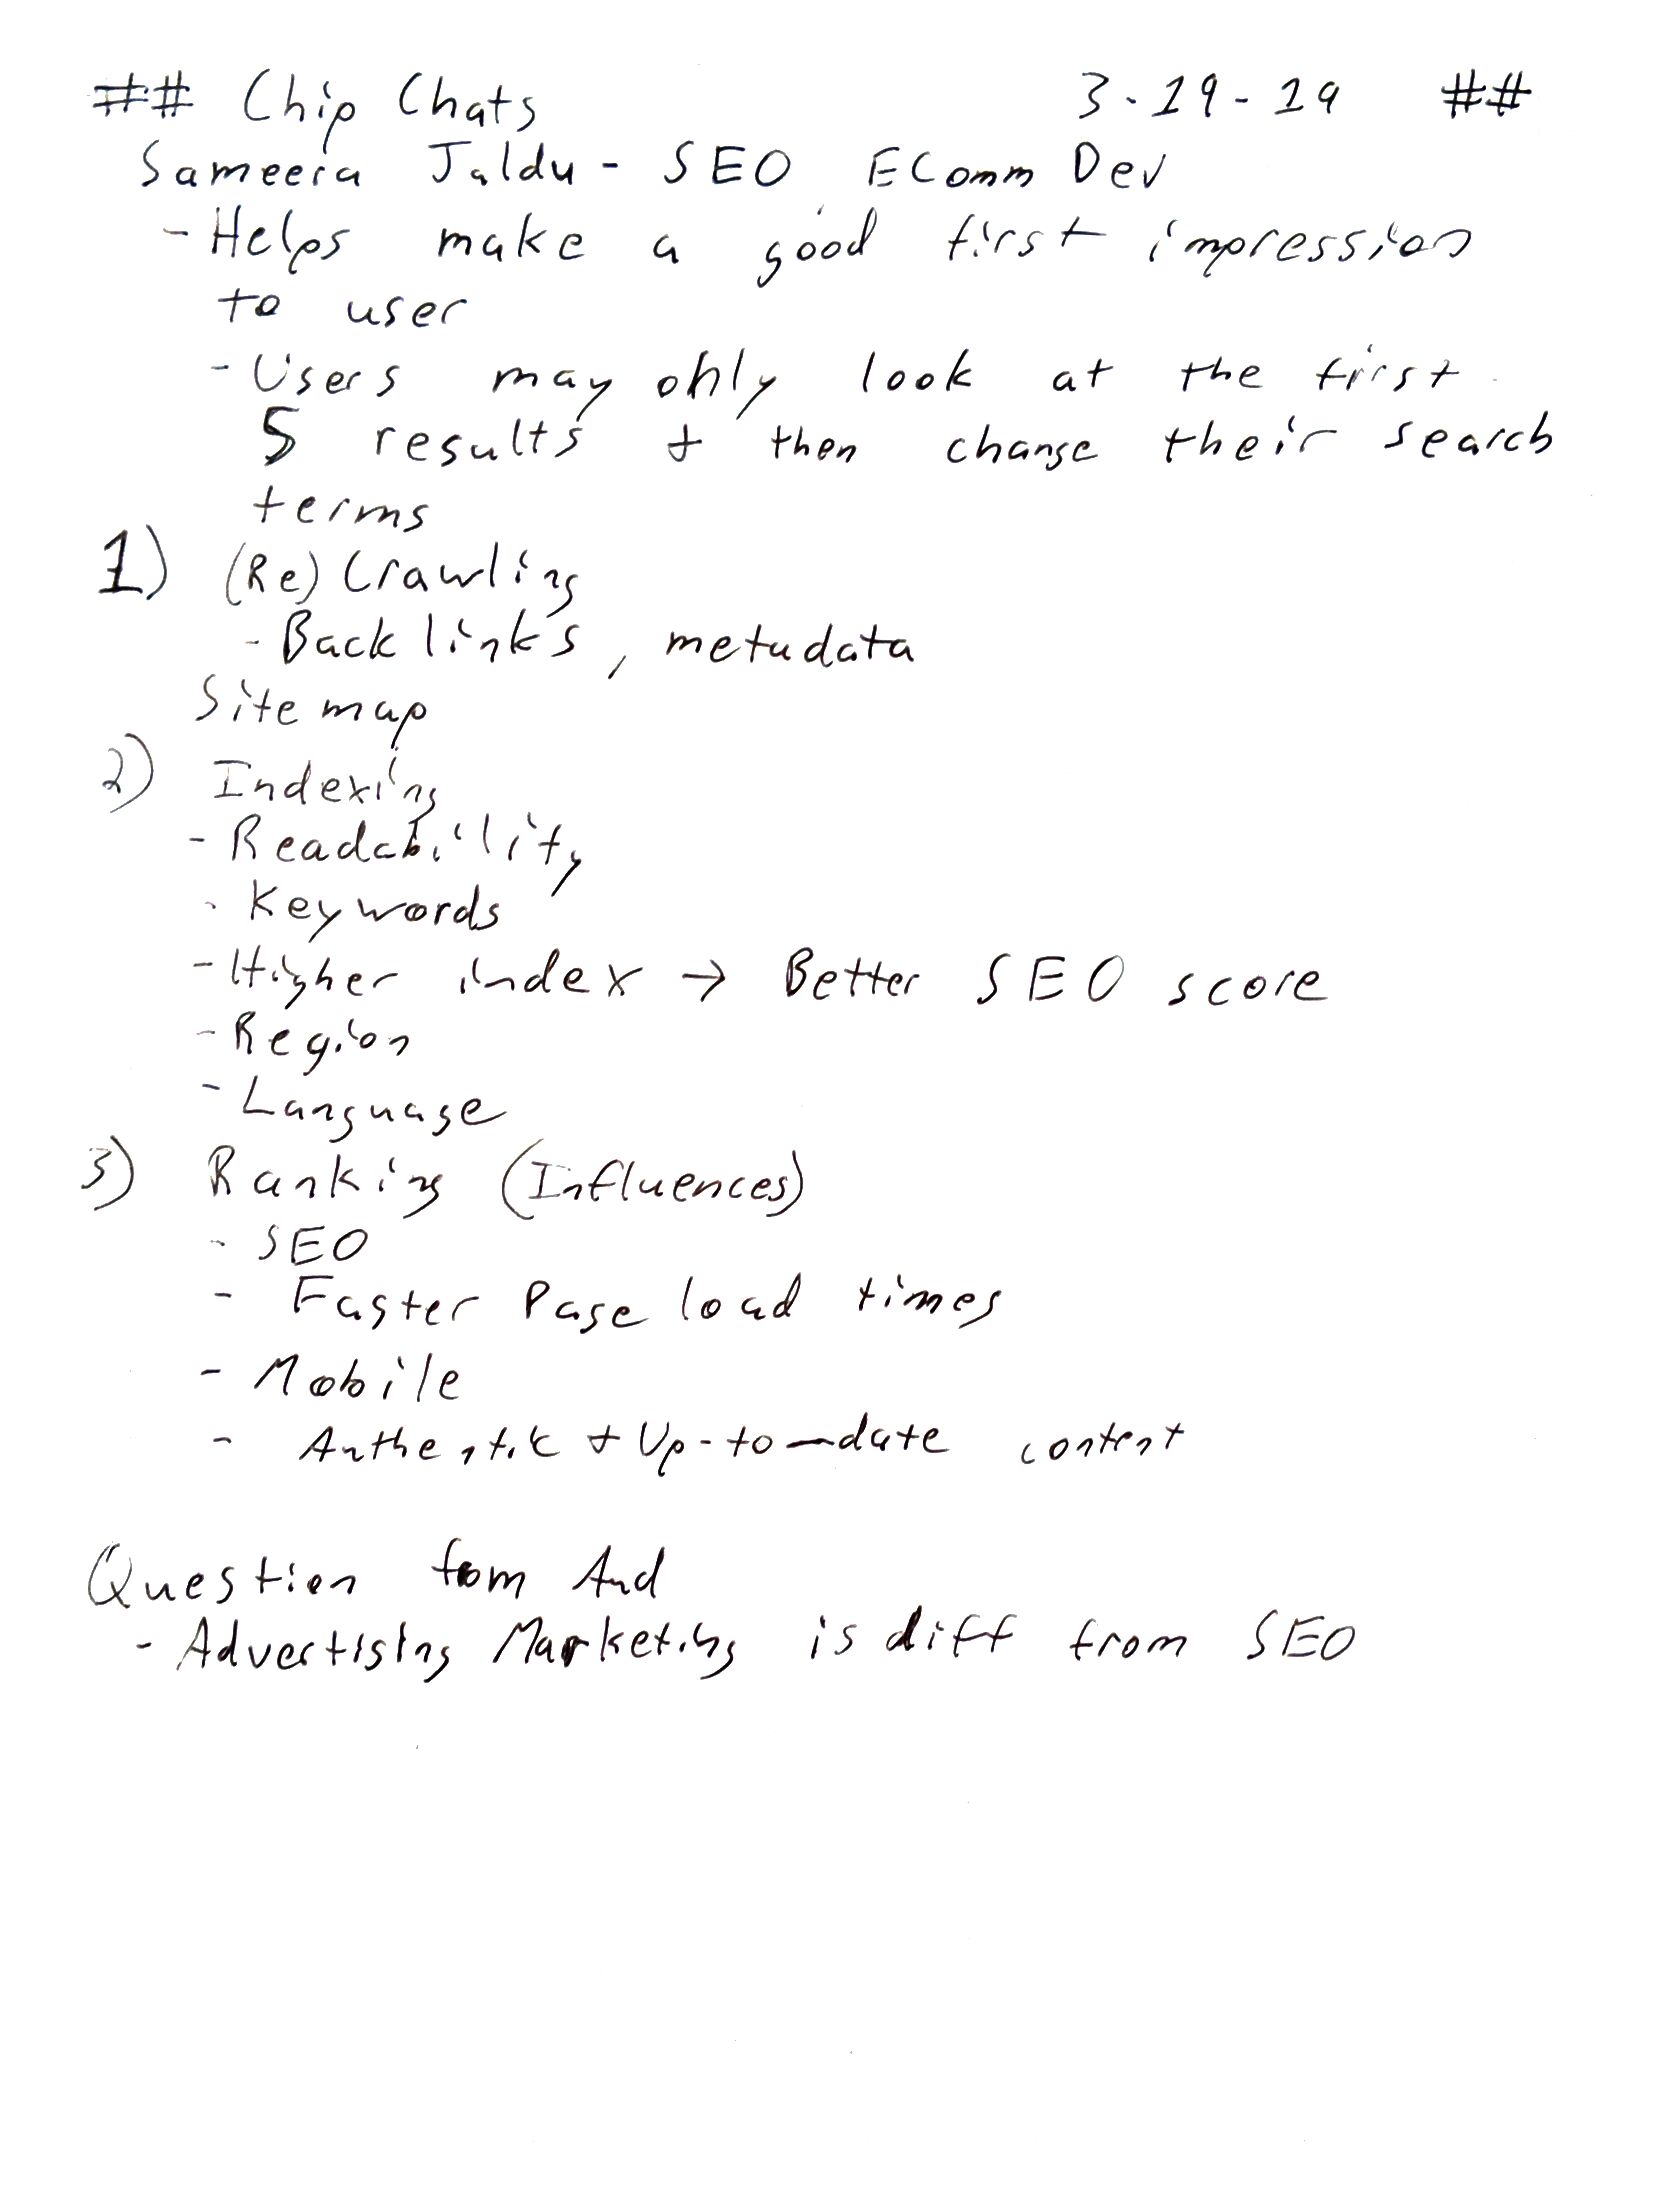 ## Chip Chats 3-19-19 ##
Sameera Jaldu - SEO EComm Dev
- Helps make a good first impression
to user
- Users may only look at the first
5 results + then change their search
terms
1) (Re) Crawling
- Backlinks, metadata
Sitemap
2) Indexing
- Readability
- Keywords
- Higher index → Better SEO score
- Region
- Language
3) Ranking (Influences)
- SEO
- Faster Page load times
- Mobile
- Authentic + Up-to-date content
Question from Aud
- Advertising Marketing is diff from SEO